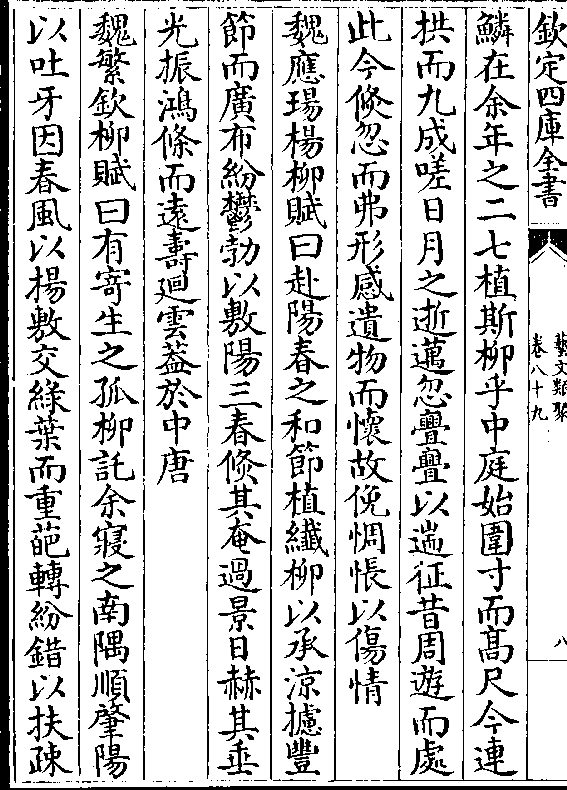 欽定四庫全書
藝文類聚
卷八十九
八
鱗在余年之二七植斯柳乎中庭始圍寸而髙尺今連
拱而九成嗟日月之逝邁忽亹亹以遄征昔周遊而處
此今倐忽而弗形感遺物而懷故俛惆悵以傷情
魏應瑒楊柳賦曰赴陽春之和節植纖柳以承涼攄豐
節而廣布紛鬱勃以敷陽三春倐其奄過景日赫其垂
光振鴻條而遠壽迴雲葢於中唐
魏繁欽柳賦曰有寄生之孤柳託余寢之南隅順肇陽
以吐牙因春風以揚敷交綠葉而重葩轉紛錯以扶疎